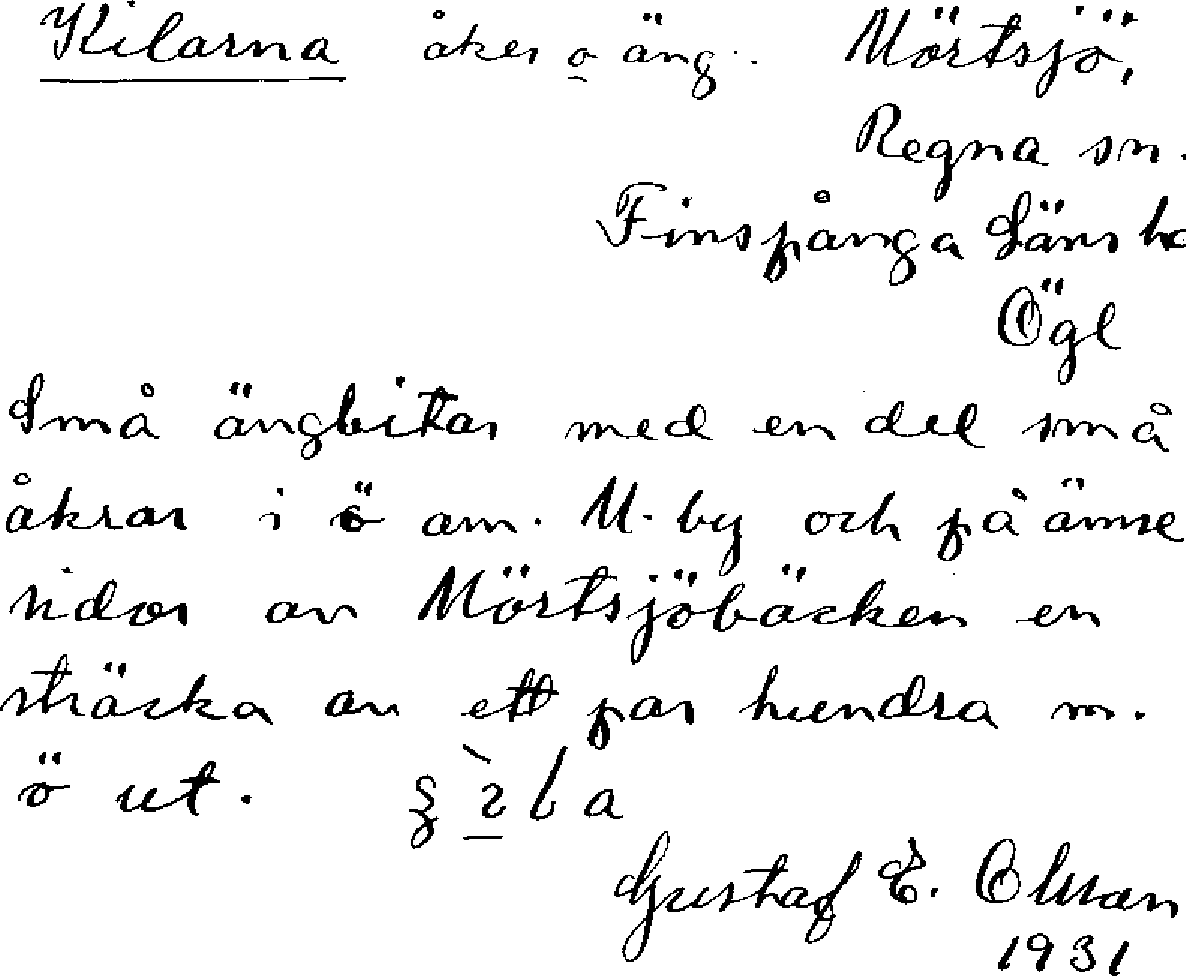 Kilarna åker o äng. Mörtsjö,
Regna sn.
Finspånga Läns h
Ögl
Små ängbitar med en del små
åkrar i ö om. M. by och på ömse
sidor om Mörtsjöbäcken en
sträcka av ett par hundra m.
ö ut.
Gustaf E. Olsson
1931